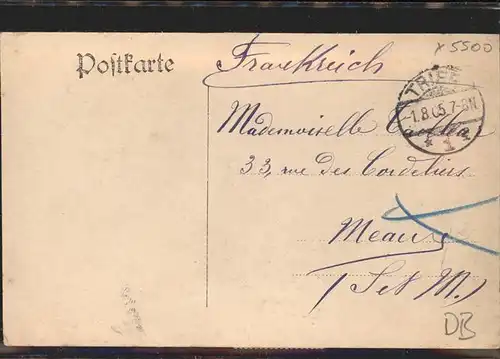 x 5500
Postkarte
Frankreich
TRIER
-1.8.05.7-8N.
* 1 *
Mademoiselle
33, rue des Cordeliers
Meaux
(S et M.)
DB